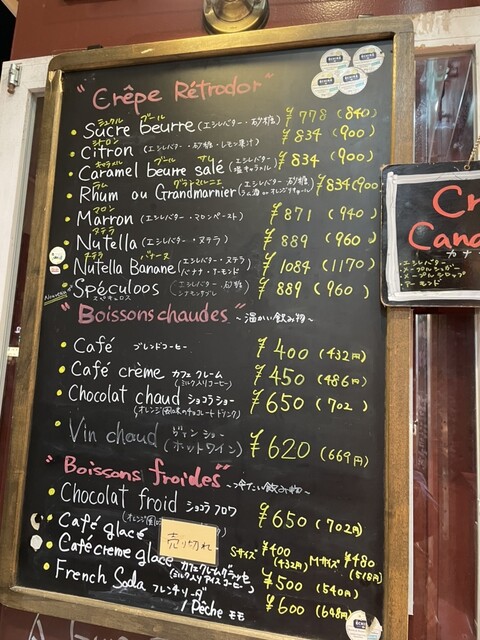 "Crêpe Rétrodor"
シュクル ブール
Sucre beurre (エシレバター・砂糖) ¥778 (840)
シトロン
Citron (エシレバター・砂糖・レモン果汁) ¥834 (900)
キャラメル ブール サレ
Caramel beurre salé (エシレバター・塩キャラメル) ¥834 (900)
ラム グランマルニエ
Rhum ou Grandmarnier (エシレバター・砂糖 ラム酒 or オレンジリキュール) ¥834 (900)
マロン
Marron (エシレバター・マロンペースト) ¥871 (940)
ヌテラ
Nutella (エシレバター・ヌテラ) ¥889 (960)
ヌテラ バナーヌ
Nutella Banane (エシレバター・ヌテラ バナナ・アーモンド) ¥1084 (1170)
Spéculoos (エシレバター・砂糖
スペキュロス ¥889 (960)
"Boissons chaudes" ～温かい飲み物～
Café ブレンドコーヒー ¥400 (432円)
Café crème カフェ クレーム (ミルク入りコーヒー) ¥450 (486円)
Chocolat chaud ショコラ ショー ¥650 (702
(オレンジ風味のチョコレートドリンク)
Vin chaud ヴァン ショー (ホットワイン) ¥620 (669円)
"Boissons froides" ～冷たい飲み物～
Chocolat froid ショコラ フロワ ¥650 (702円)
Café glacé 売り切れ Sサイズ ¥400 (432円) Mサイズ ¥480 (518円)
Café crème glacé カフェ クレーム グラッセ (ミルク入りアイスコーヒー) ¥500 (540円)
French Soda フレンチソーダ ¥600 (648円)
/ Pêche モモ
Cr
Cana
カナ
・エシレバター
・メープルシュガー
・メープルシロップ
・アーモンド